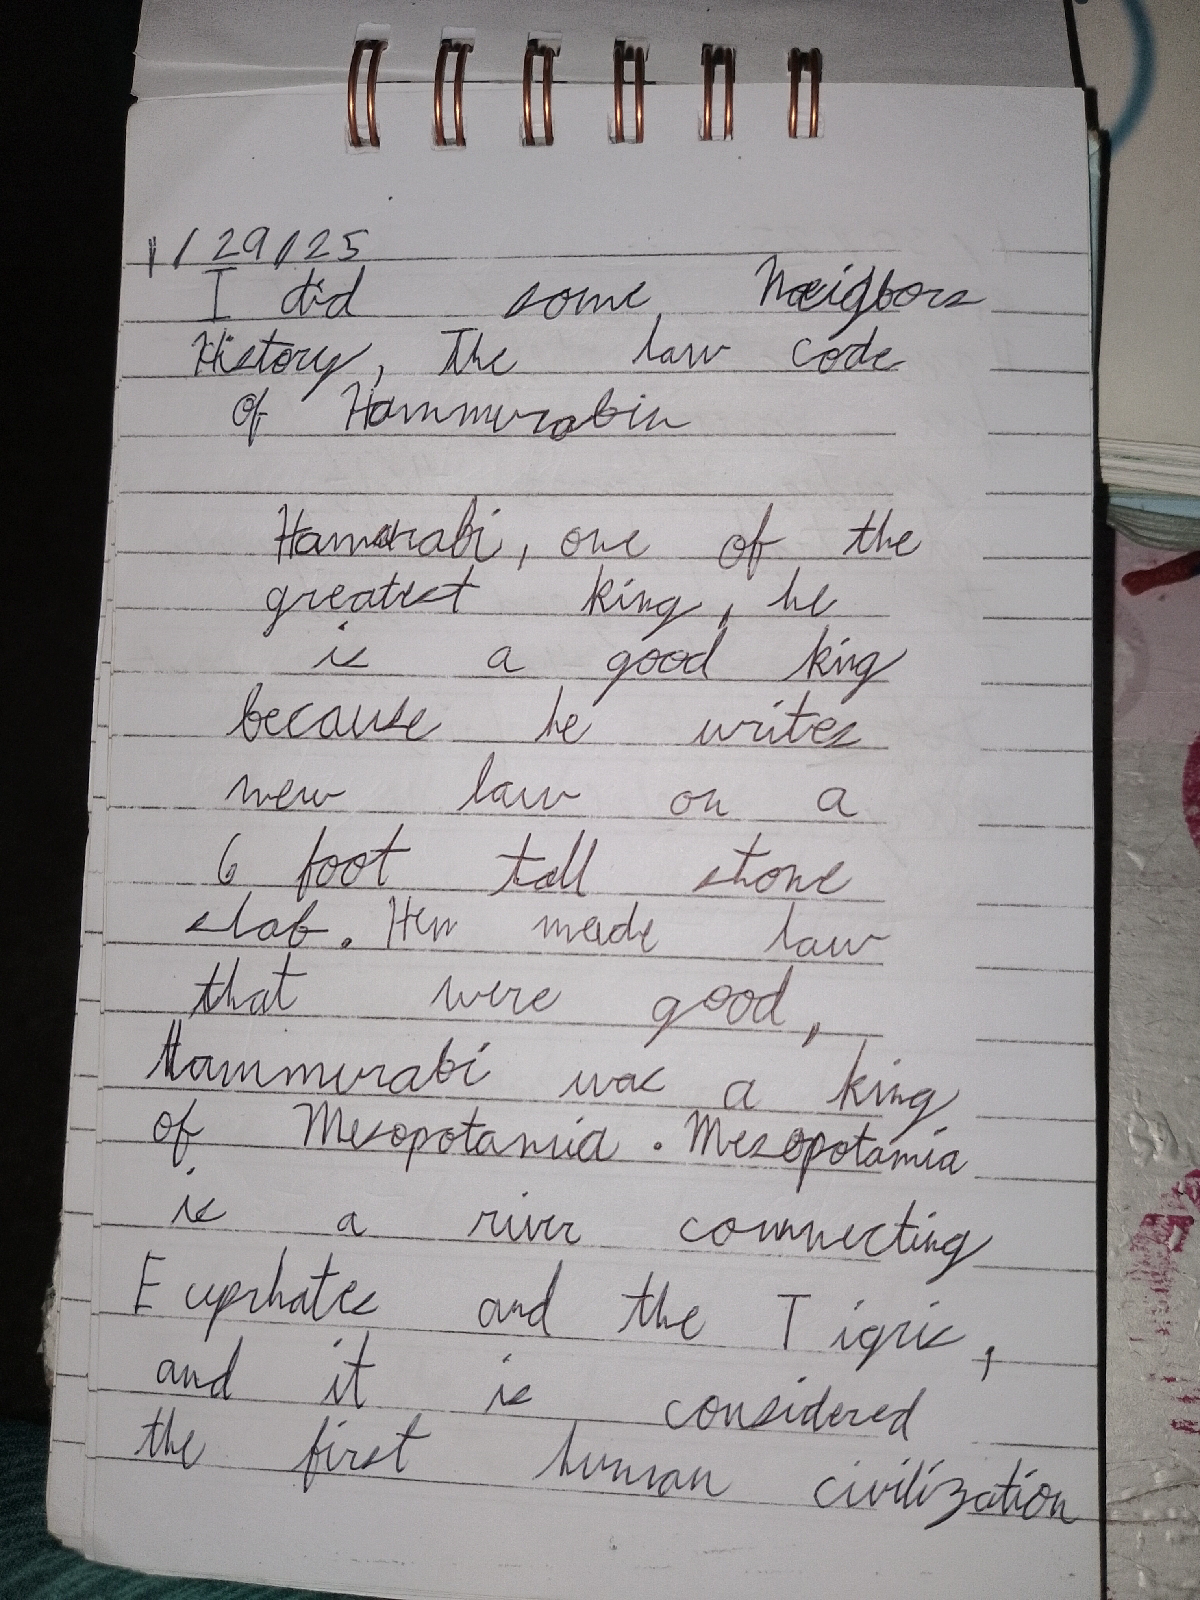 1/29/25
I did some Neigbors
History, The law code
of Hammurabin
Hamurabi, one of the
greatest king, he
is a good king
because he writes
new law on a
6 foot tall stone
slab. Hen made law
that were good,
Hammurabi was a king
of Mesopotamia. Mesopotamia
is a river connecting
Euprhates and the Tigris,
and it is considered
the first human civilization